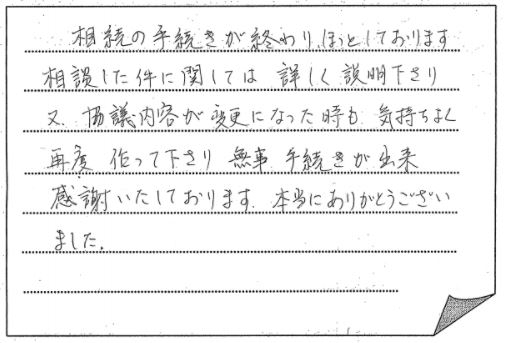 相続の手続きが終わり、ほっとしております
相談した件に関しては 詳しく説明下さり
又、協議内容が変更になった時も、気持ちよく
再度 作って下さり 無事 手続きが出来
感謝いたしております。本当にありがとうござい
ました。